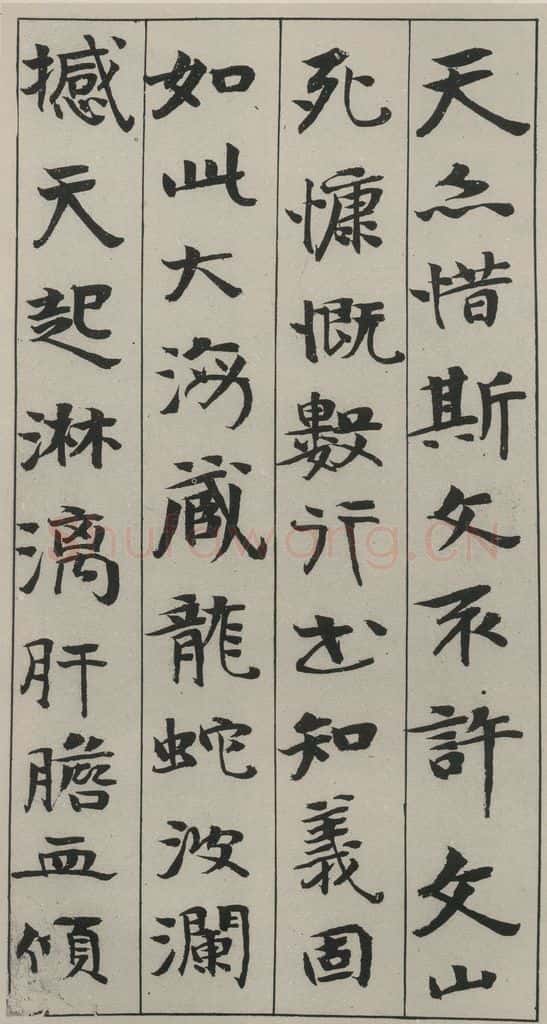 天亦惜斯文不許文山
死慷慨數行書知義固
如此大海藏龍蛇波瀾
撼天起淋漓肝膽血傾
shufawang.CN